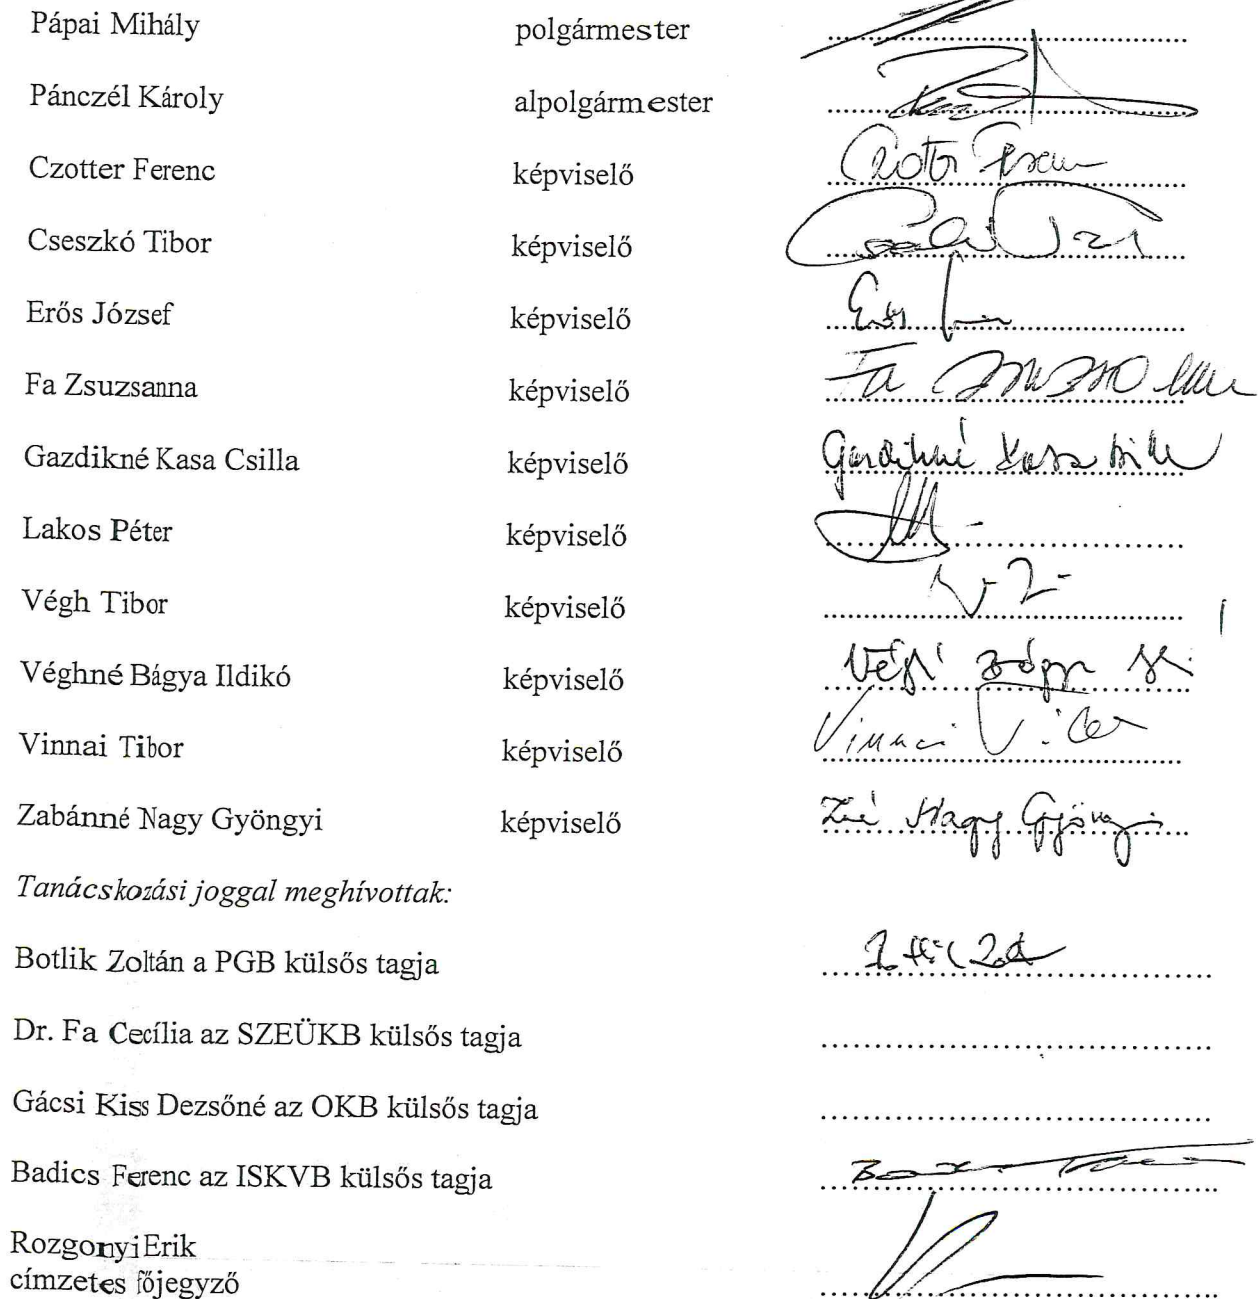 Pápai Mihály polgármester
Pánczél Károly alpolgármester
Czotter Ferenc képviselő
Cseszkó Tibor képviselő
Erős József képviselő Erős
Fa Zsuzsanna képviselő Fa Zsuzsanna
Gazdikné Kasa Csilla képviselő Gazdikné Kasa Csilla
Lakos Péter képviselő
Végh Tibor képviselő
Véghné Bágya Ildikó képviselő
Vinnai Tibor képviselő Vinnai Tibor
Zabánné Nagy Gyöngyi képviselő Zné Nagy Gyöngyi
Tanácskozási joggal meghívottak:
Botlik Zoltán a PGB külsős tagja
Dr. Fa Cecília az SZEÜKB külsős tagja
Gácsi Kiss Dezsőné az OKB külsős tagja
Badics Ferenc az ISKVB külsős tagja
Rozgonyi Erik
címzetes főjegyző